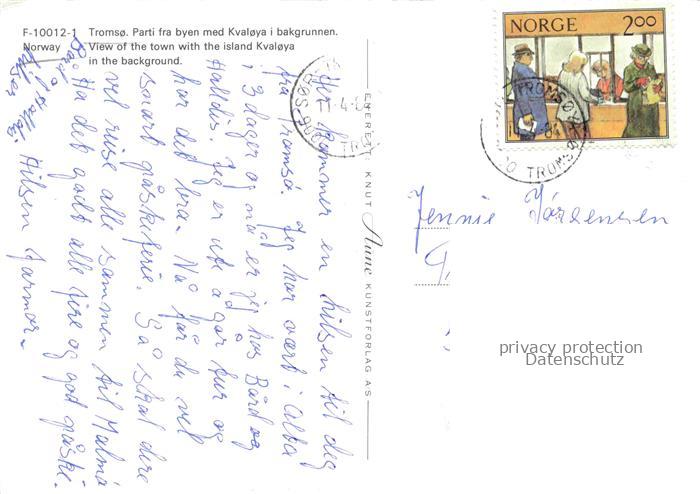 F-10012-1 Tromsø. Parti fra byen med Kvaløya i bakgrunnen.
Norway View of the town with the island Kvaløya
in the background.
NORGE 2.00
TROMSØ
ENERETT: KNUT Aune KUNSTFORLAG AS
Her kommer en hilsen til deg
fra Tromsø. Jeg har vært i Alta
i 3 dager og nå er jeg hos Bård og
Halldis. Jeg er ute å går tur og
har det bra. Nå får du vel
snart påskeferie. Så skal dere
vel reise alle sammen til Malmö
Ha det godt alle fire og god påske.
Hilsen farmor.
Jennie Jørgensen
privacy protection
Datenschutz